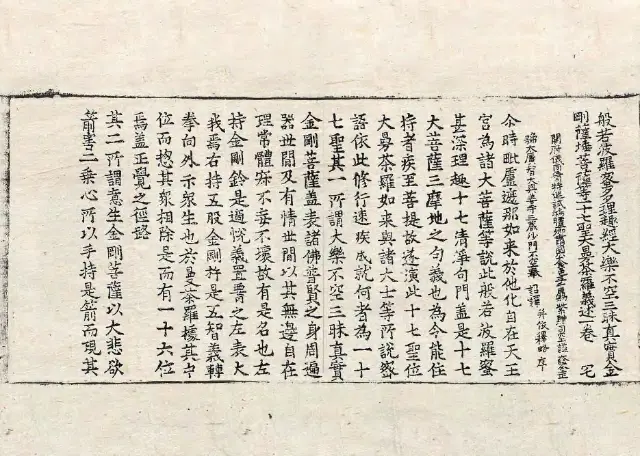 般若波羅蜜多理趣經大樂不空三昧真實金
剛薩埵菩薩等一十七聖大曼荼羅義述一卷　宅
大廣智大興善寺三藏沙門不空奉　詔譯　并依釋略序
尒時毗盧遮那如來於他化自在天王
宮為諸大菩薩等說此般若波羅蜜
甚深理趣十七清淨句門蓋是十七
大菩薩三摩地之句義也為令能住
持者疾至菩提故遂演此十七聖位
大曼荼羅如來與諸大士等所說密
語依此修行速疾成就何者為一十
七聖其一所謂大樂不空三昧真實
金剛菩薩蓋表諸佛普賢之身周遍
器世間及有情世間以其無邊自在
理常體寐不妄不壞故有是名也左
持金剛鈴是適悅義置䏶之左表大
我焉右持五股金剛杵是五智義轉
拳向外示衆生也六曼荼羅據其中
位而揔其衆相除是而有一十六位
焉蓋正覺之徑路
其二所謂意生金剛菩薩以大悲欲
箭害二乘心所以手持是箭而現其